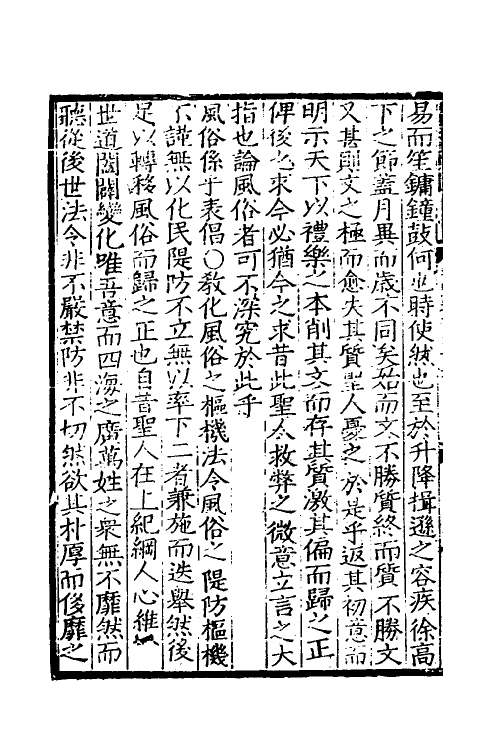 易而笙鏞鐘鼓何也時使然也至於升降揖遜之容疾徐高
下之節蓋月異而歲不同矣始而文不勝質終而質不勝文
又甚則文之極而愈失其質聖人憂之於是乎返其初意而
明示天下以禮樂之本削其文而存其質激其偏而歸之正
俾後之求今必猶今之求昔此聖人救弊之微意立言之大
指也論風俗者可不深究於此乎
風俗係乎表倡○敎化風俗之樞機法令風俗之隄防樞機
不謹無以化民隄防不立無以率下二者兼施而迭舉然後
足以轉移風俗而歸之正也自昔聖人在上紀綱人心維
世道闔闢變化唯吾意而四海之廣萬姓之衆無不靡然而
聽從後世法令非不嚴禁防非不切然欲其朴厚而侈靡之